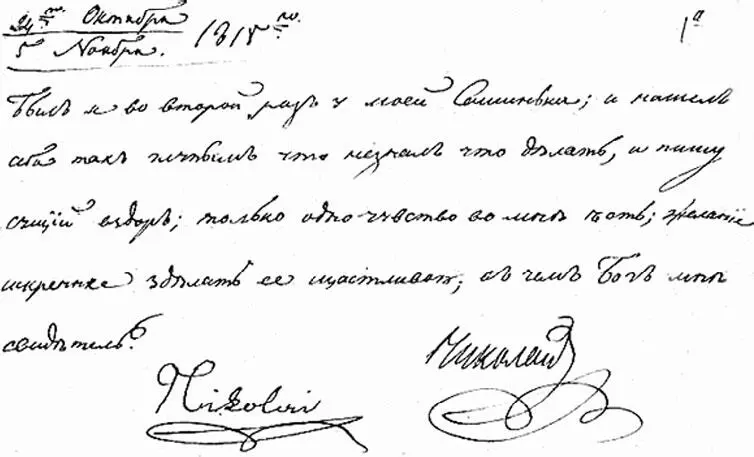 24го Октября 1815го. 1й
5 Ноября.
Былъ я во второй разъ у моей и нашелъ
себя такъ что незналъ что дѣлать, и пишу
сущій вздоръ; только одно чувство во мнѣ есть; желаніе
искренне здѣлать ее щастливою, въ чемъ Богъ мнѣ
свидѣтель.
Nikolai Николай